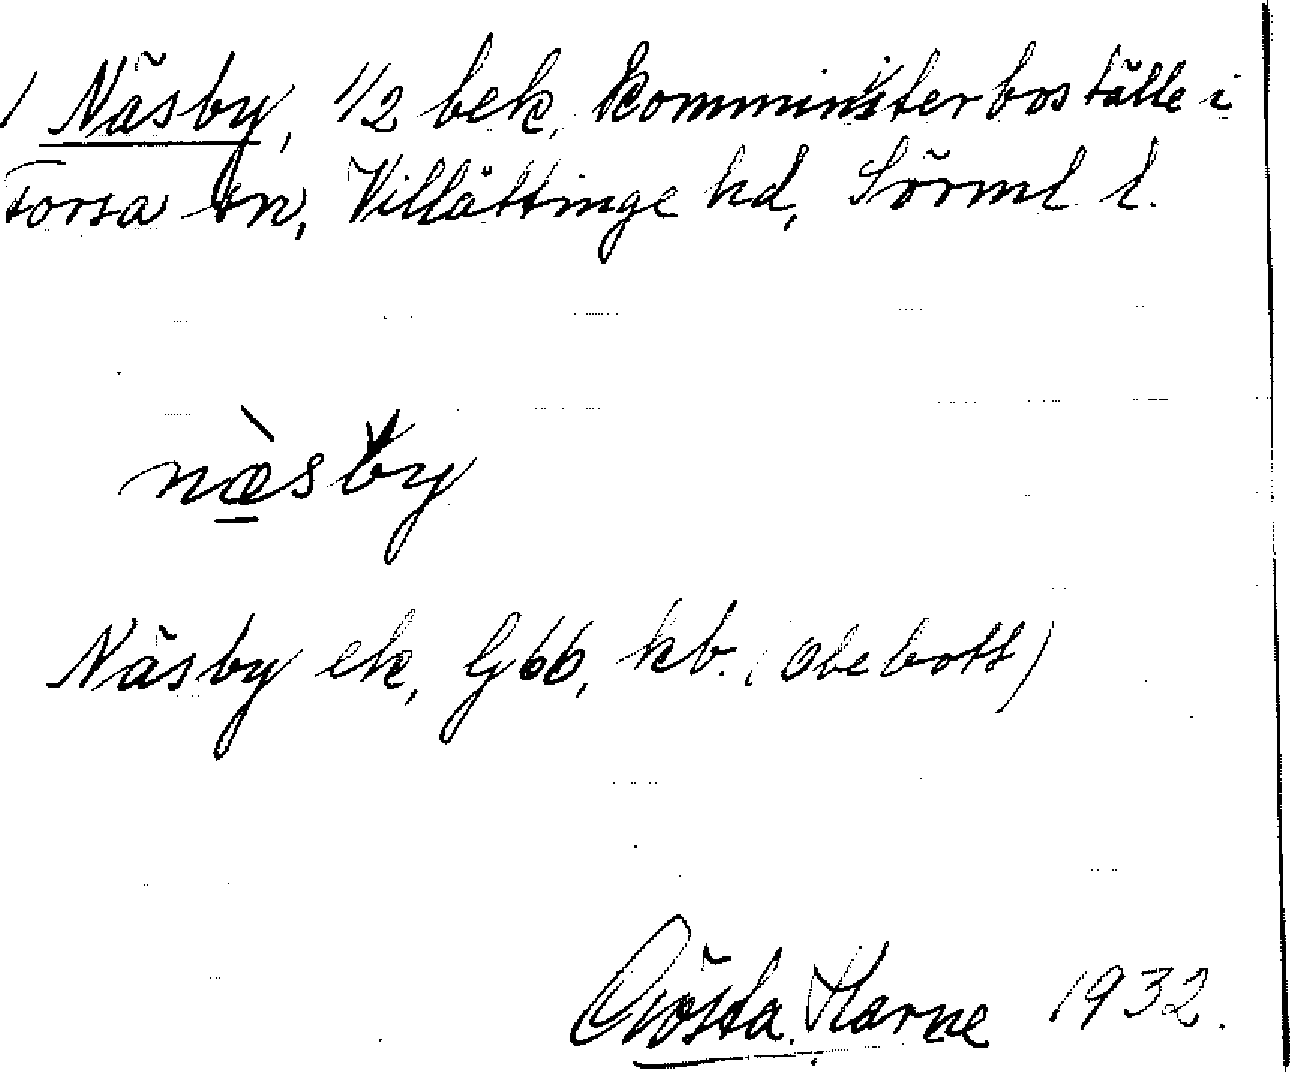 1 Näsby, 1/2 bek, komministerboställe i
Forsa sn, Villåttinge hd, Sörml l.
næ̀sby
Näsby ek, G66, kb. (obebott)
Gösta Harne 1932.